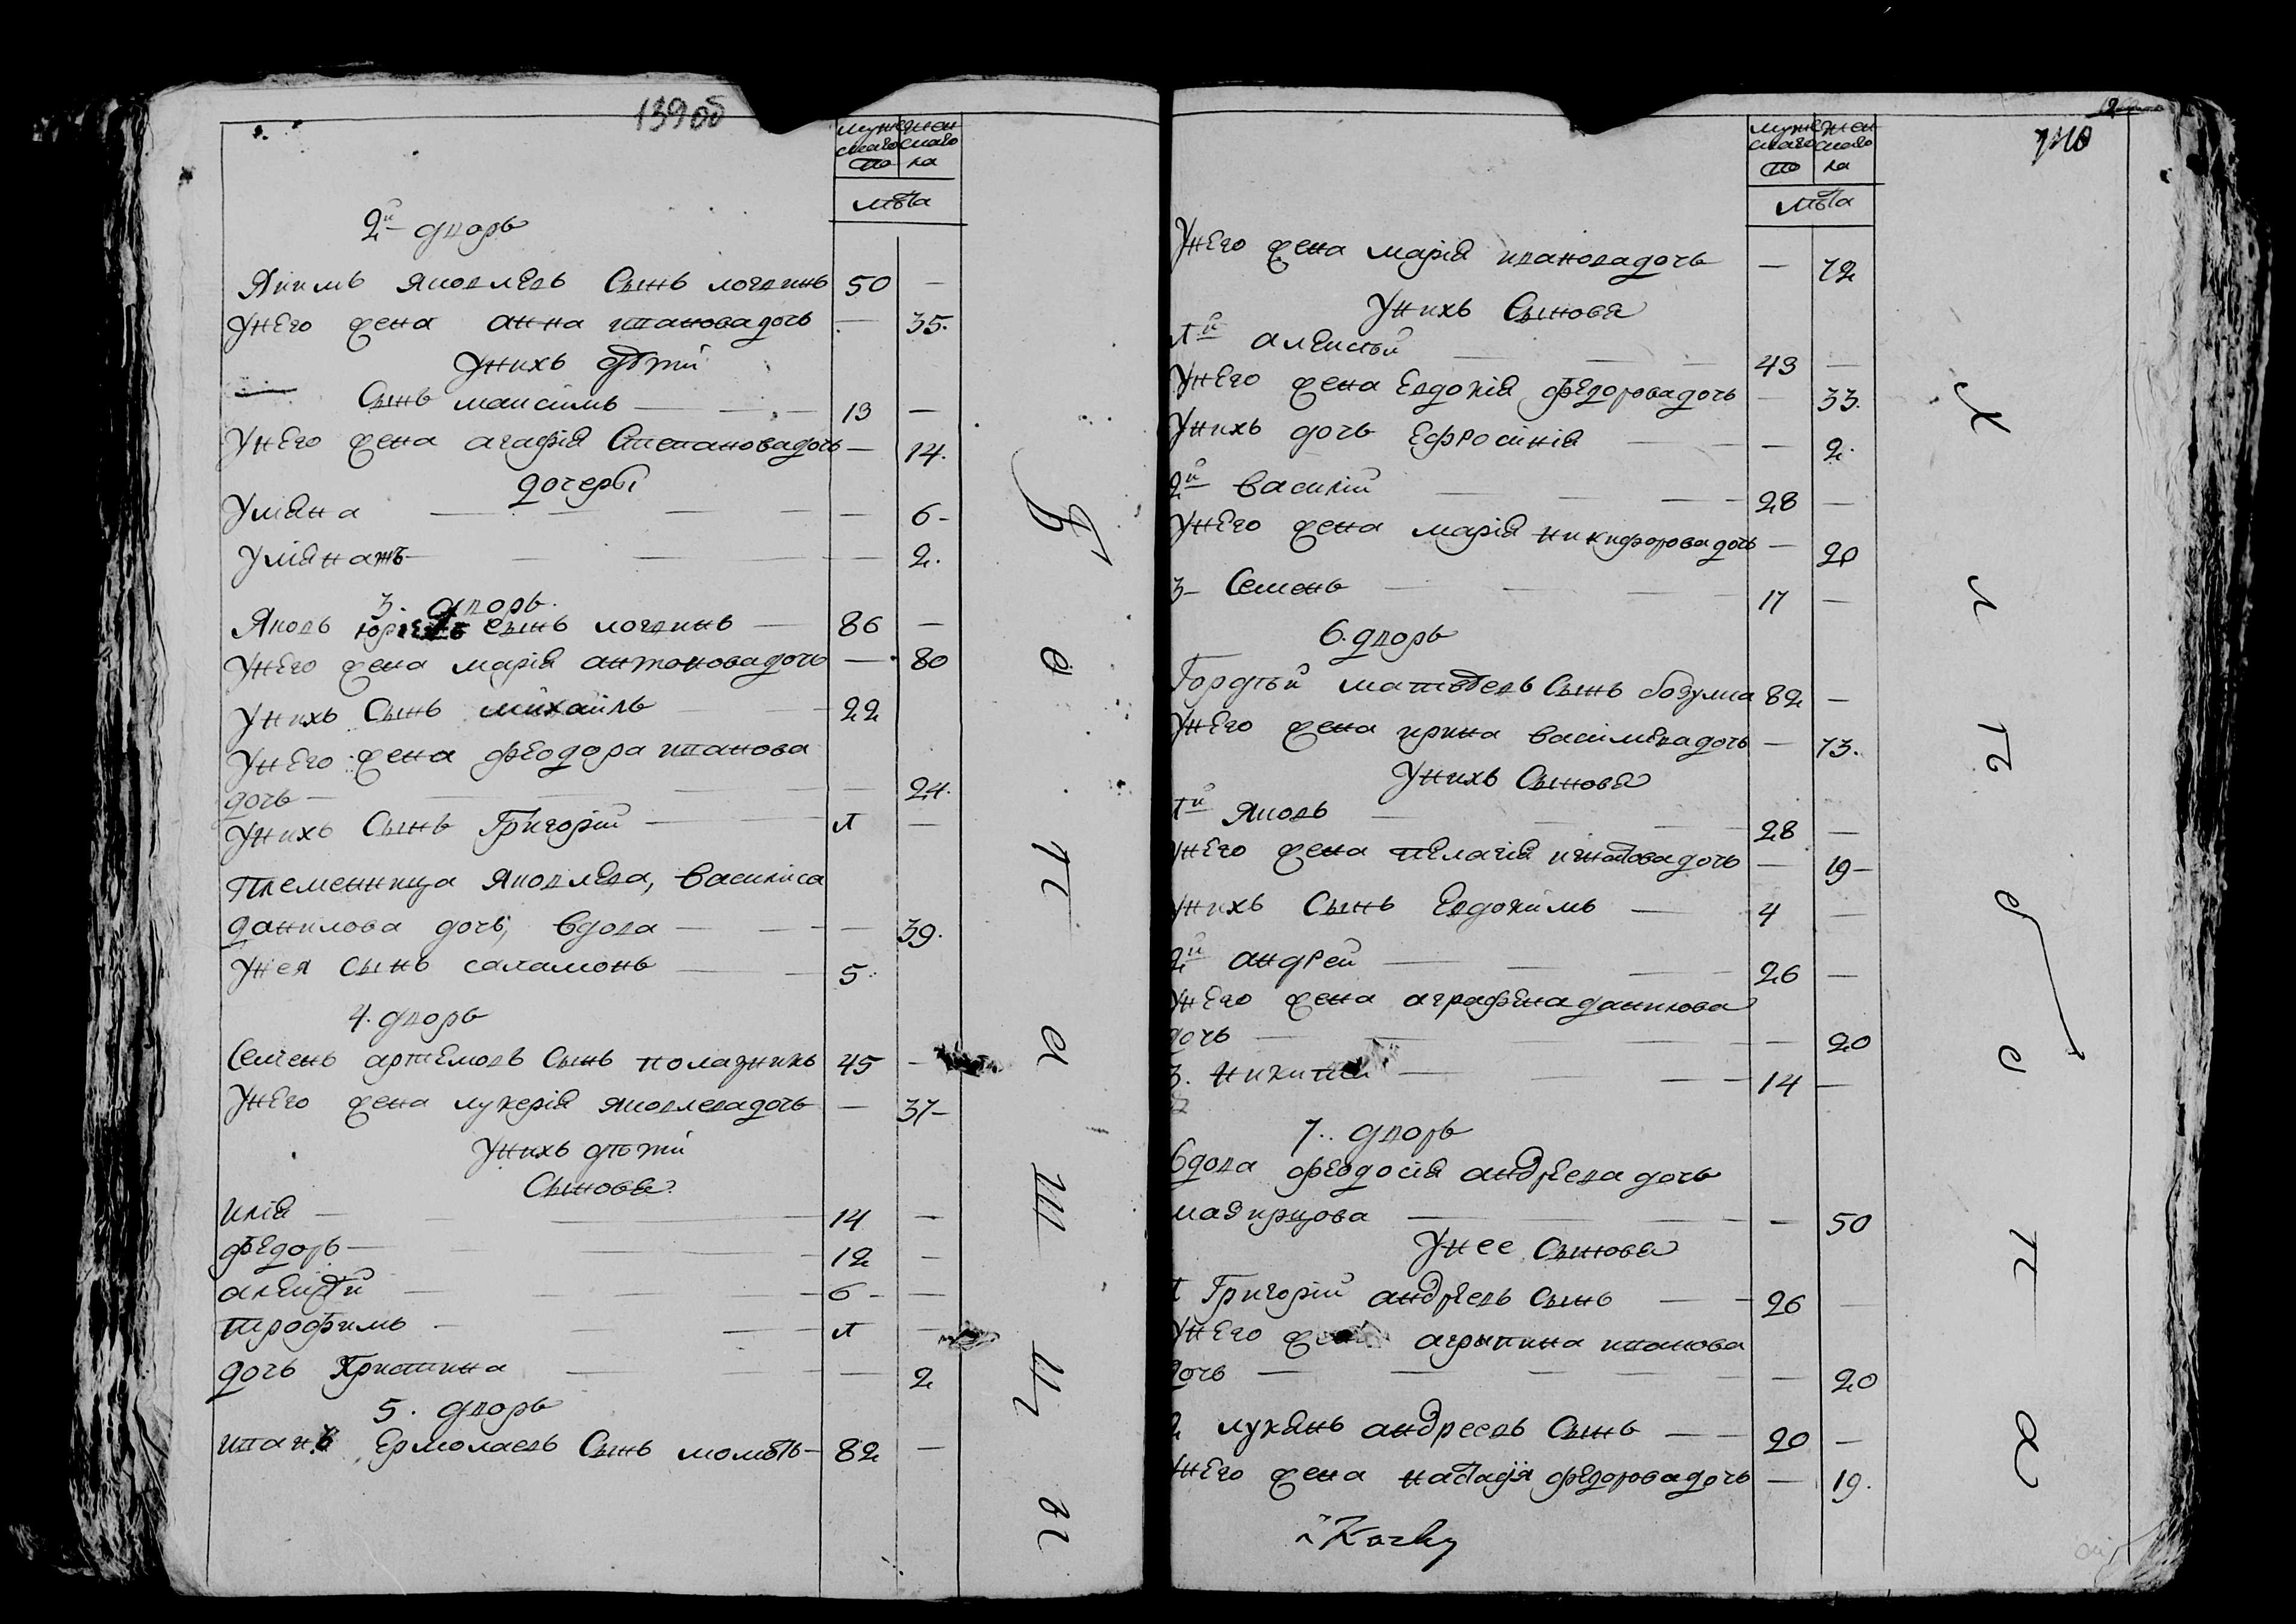 139об
муже жен
скаго скаго
по ла
лѣта
2й дворъ
Якимъ Яковлевъ Сынъ логвинъ 50 —
Унего жена анна иванова дочь — 35.
Унихъ дѣти
Сынъ максимъ — 13 —
Унего жена агафія Степановадочь — 14.
дочеры
Уліяна — — 6 -
Уліяна жъ — — 2.
3. дворъ.
Яковъ Сынъ логвинъ — 86 —
Унего жена марія антоновадочь — 80
Унихъ Сынъ михаилъ — 22
Унего жена феодора иванова
дочь — — 24.
Унихъ Сынъ Григорій — 1 —
Племенница Яковлева, Василиса
данилова дочь, вдова — — 39.
Унея Сынъ саламонъ — 5.
4. дворъ
Семенъ артемовъ Сынъ коладникъ 45 —
Унего жена лукерія яковлевадочь — 37 -
Унихъ дѣти
Сыновя
илія — 14 —
федоръ — 12 —
алексѣй — 6 - —
трофимъ — 1 —
дочь Христина — — 2
5. дворъ
иванъ Ермолаевъ Сынъ 82 —
муже жен
скаго скаго
по ла
лѣта
140
Унего жена марія ивановадочь — 72
Унихъ Сыновя
1й алексѣй — 43 —
Унего жена Евдокія федоровадочь — 33.
Унихъ дочь Ефросинія — — 2.
2й Василій — 28 —
Унего жена марія никифоровадочь — 20
3 - Семенъ — 17 —
6. дворъ
Гордѣй матвѣевъ Сынъ бозулка 82 —
Унего жена ирина Василіевадочь — 73.
Унихъ Сыновя
1й Яковъ — 28 —
Унего жена пелагія игнатовадочь — 19 -
Унихъ Сынъ Евдокимъ — 4 —
2й андрей — 26 —
Унего жена аграфенаданилова
дочь — — 20
3. никита — 14 —
7. дворъ
Вдова феодосія андреева дочь
— — 50
Унее Сыновя
1 Григорій андреевъ Сынъ — 26 —
Унего жена агрыпина иванова
дочь — — 20
2 лукянъ андреевъ Сынъ — 20 —
Унего жена настасія федоровадочь — 19.